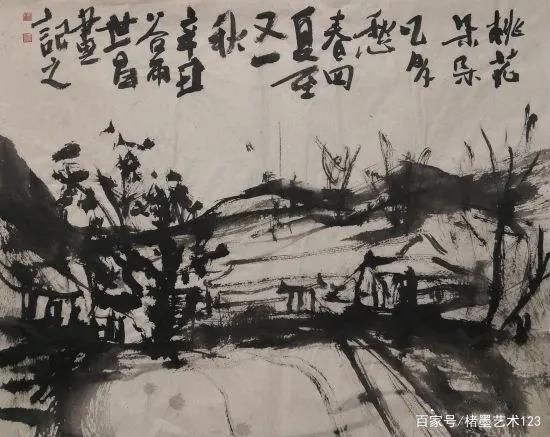 桃花
朵朵
愁
春回
夏至
又一
秋
辛丑
谷雨
世昌
畫
記之
百家号/楮墨艺术123